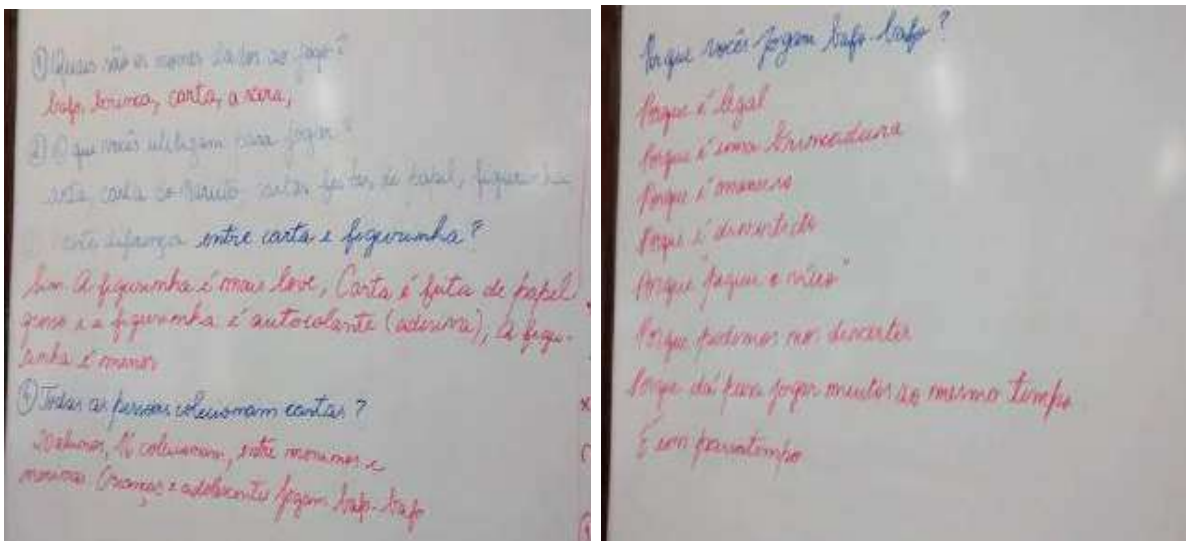 ① Quais são os nomes dados ao jogo?
bafo, brinca, carta, a vera,
② O que vocês utilizam para jogar?
carta, carta do Naruto, cartas feitas de papel, figurinha
existe diferença entre carta e figurinha?
Sim A figurinha é mais leve, Carta é feita de papel
grosso e a figurinha é autocolante (adesiva), A figu-
rinha é menor
④ Todas as pessoas colecionam cartas?
20 alunos, 16 colecionam, entre meninos e
meninas. Crianças e adolescentes jogam bafo-bafo
Porque vocês jogam bafo-bafo?
Porque é legal
Porque é uma brincadeira
Porque é maneiro
Porque é divertido
Porque
Porque podemos nos divertir
Porque dá para jogar muitos ao mesmo tempo
É um passatempo